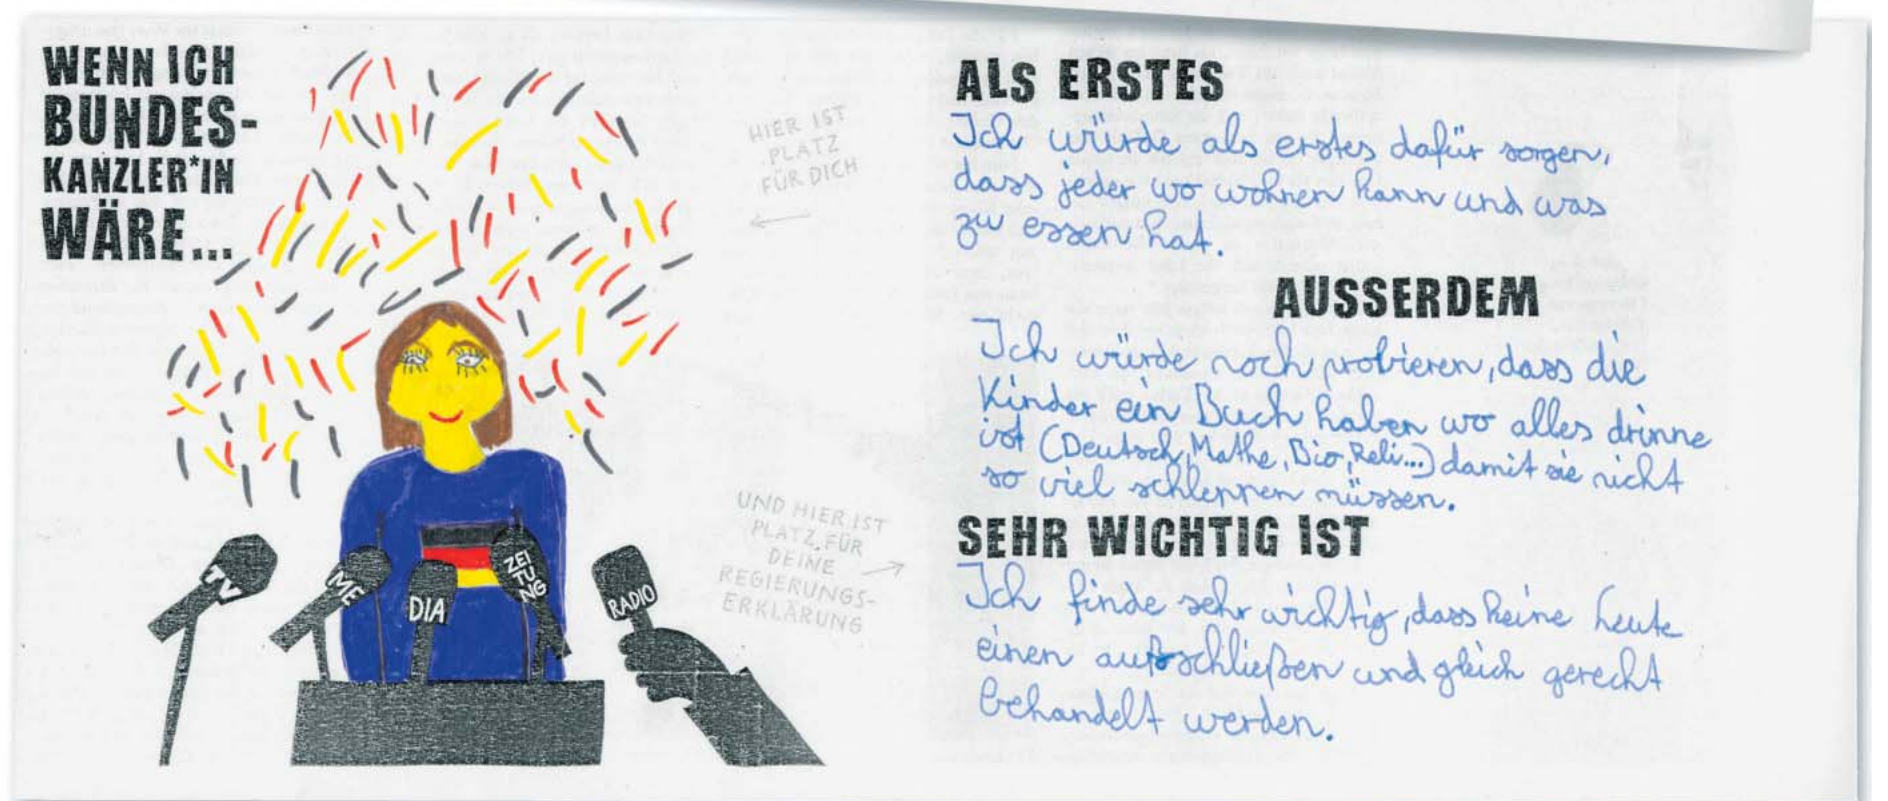 WENN ICH
BUNDES-
KANZLER*IN
WÄRE...
HIER IST
PLATZ
FÜR DICH
TV
ME
DIA
ZEI
TU
NG
RADIO
UND HIER IST
PLATZ FÜR
DEINE
REGIERUNGS-
ERKLÄRUNG
ALS ERSTES
Ich würde als erstes dafür sorgen,
dass jeder wo wohnen kann und was
zu essen hat.
AUSSERDEM
Ich würde noch probieren, dass die
Kinder ein Buch haben wo alles drinne
ist (Deutsch, Mathe, Bio, Reli...) damit sie nicht
so viel schleppen müssen.
SEHR WICHTIG IST
Ich finde sehr wichtig, dass keine Leute
einen außschließen und gleich gerecht
behandelt werden.